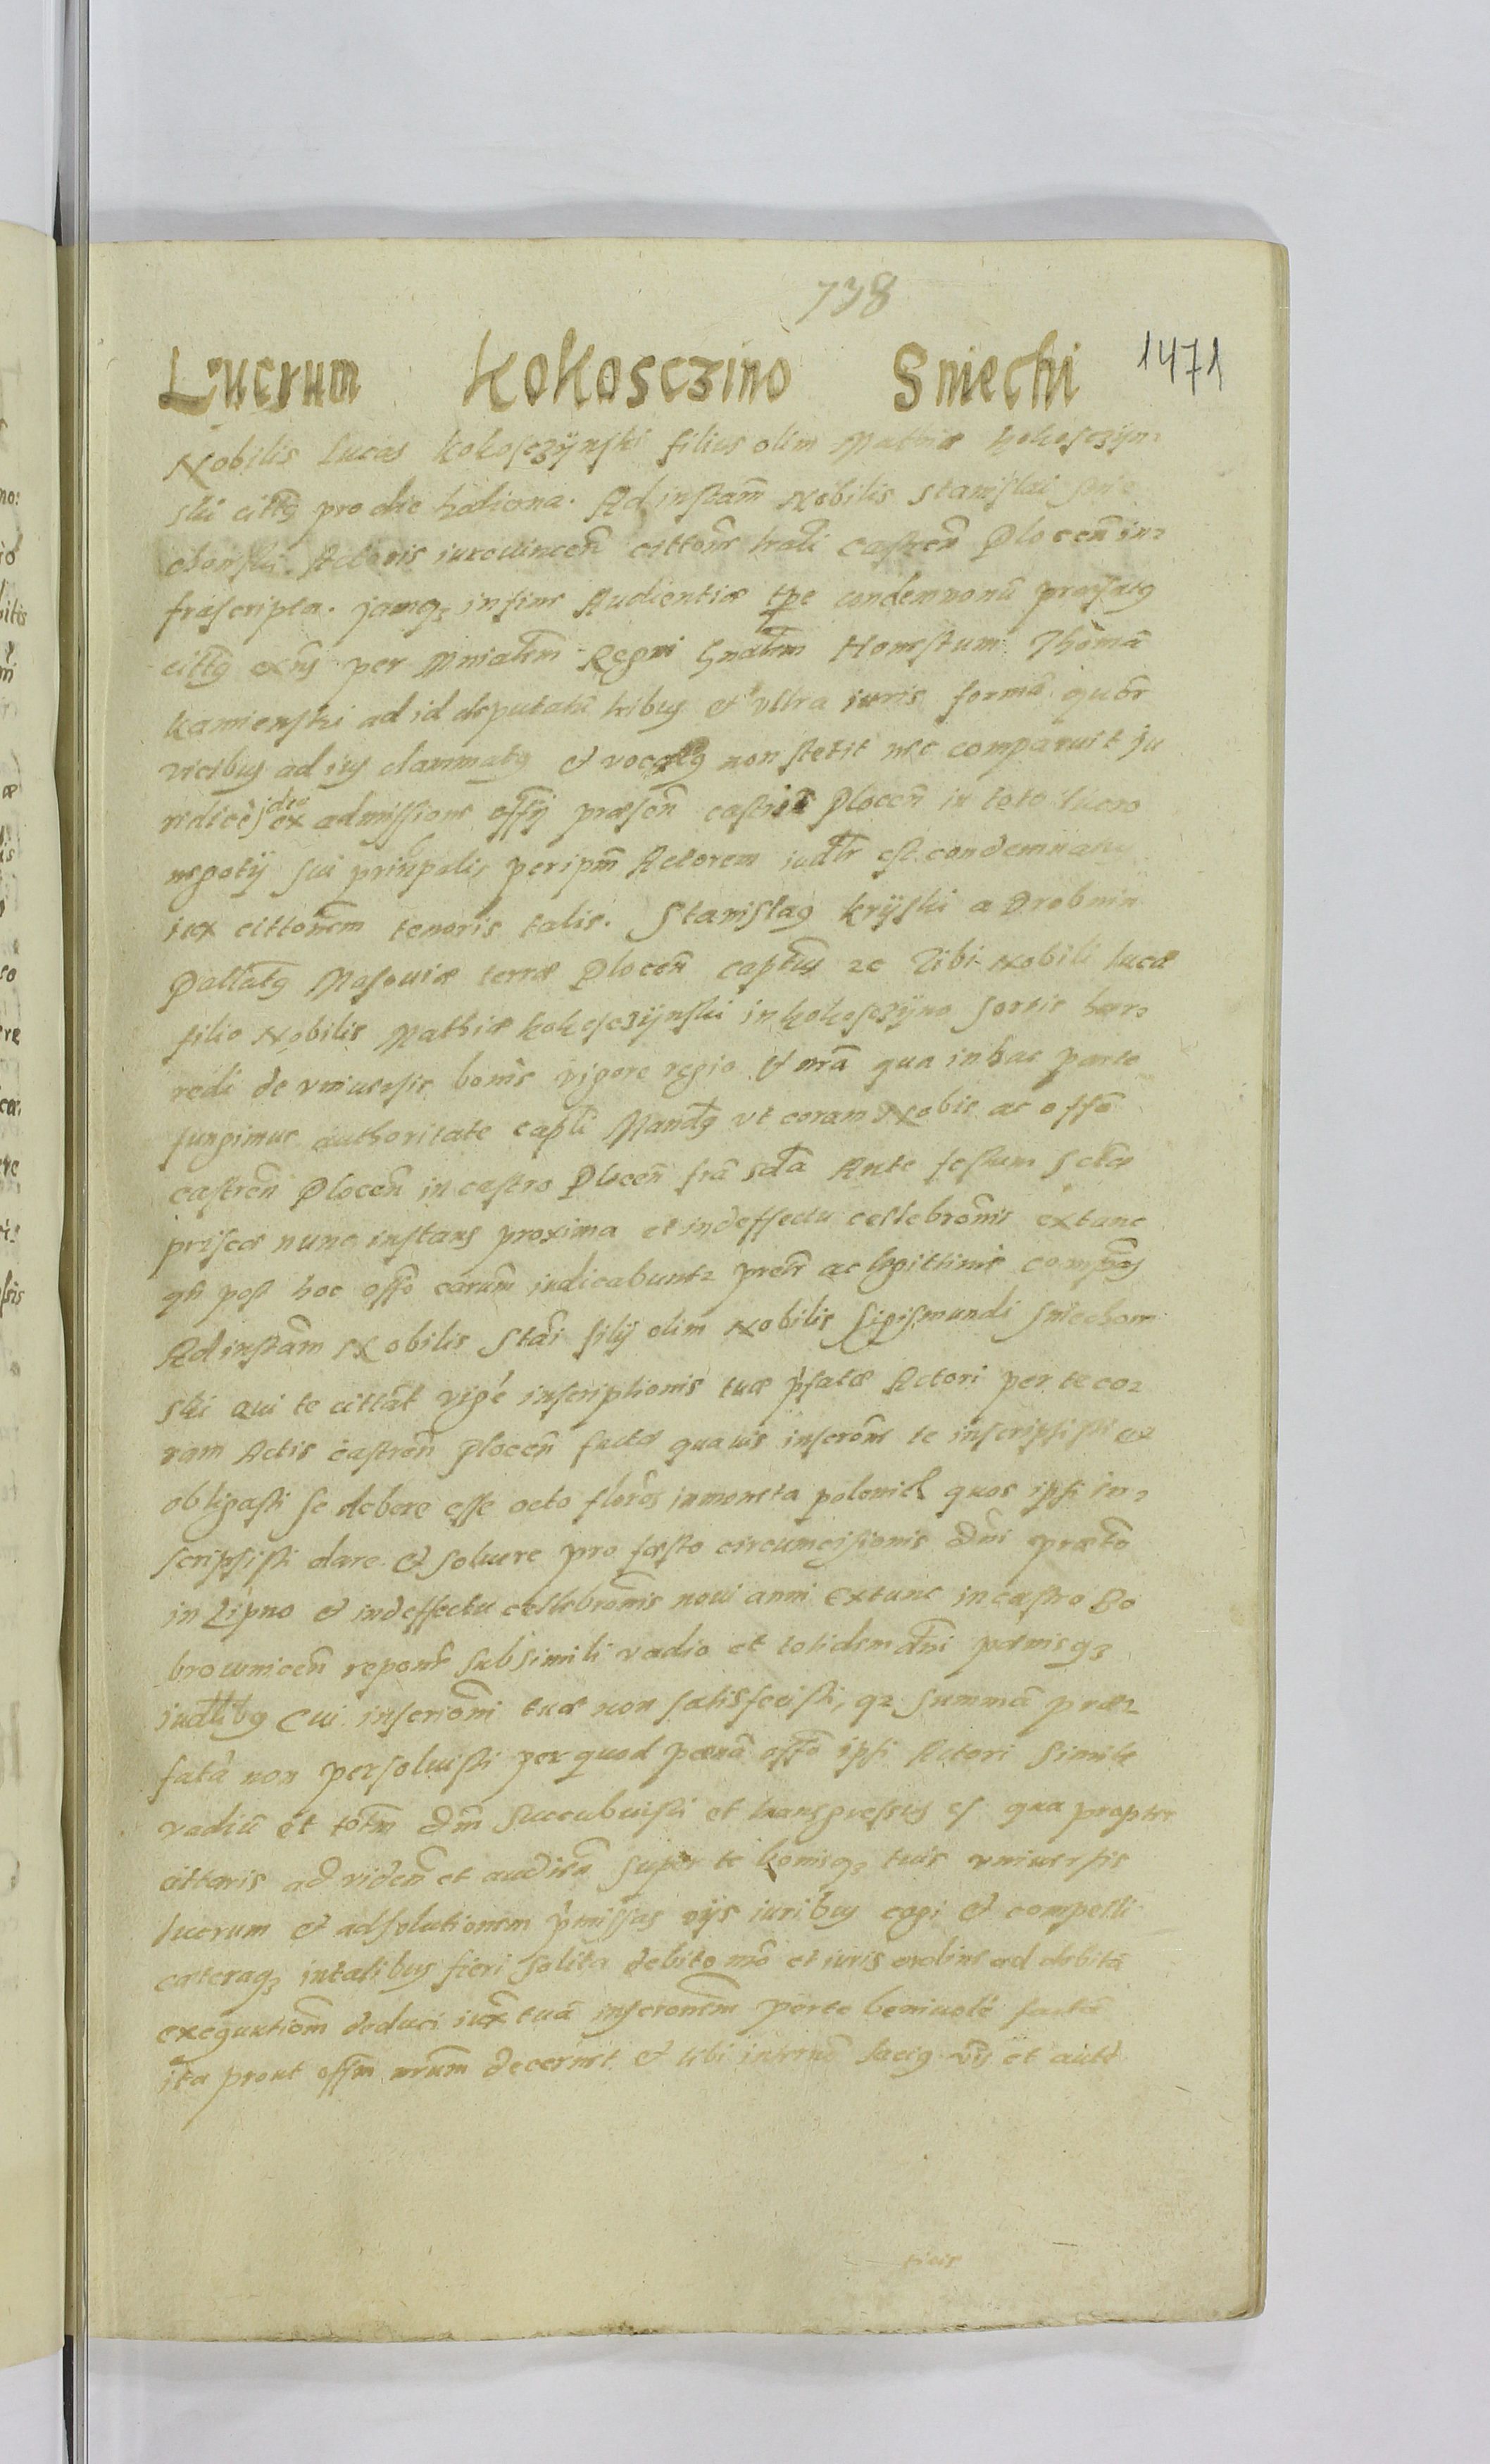 738
Lucrum Kokosczino Sniechi 1471
Nobilis Lucas Kokosczÿnski filius olim Mathiæ Kokosczÿn-
ski cittꝰ pro die hodierna. Ad instam̃ Nobilis Stanislai Snie
chonski Actoris iurevincen̄ cittoñe trali castren̄ Plocen̄ in-
frascripta. jamqꝫ in fine Audientiæ tp̄e condemnonū præfatꝰ
cittꝰ exn̄s per Mniatem̃ Regni Gnalem̃ Honestum Thomā
Kamienski ad id deputatū tribus et vltra iuris formā
vicibus ad ius clammatꝰ et vocatꝰ non stetit nec comparuit Ju
ridicè jdeo ex admissione offÿ præsen̄ castri Plocen̄ in toto lucro
negotÿ sui prinĉpalis per ipm̄ Actorem iudlr est condemnatus
iux cittonem̃ tenoris talis. Stanislaꝰ Krÿski a Drobnin
Pallatꝰ Masouiæ terræ Plocen̄ captus ꝛc Tibi Nobili Lucæ
filio Nobilis Mathiæ Kokosczÿnski in Kokosczÿno sortis hær-
redi de vniuersis bonis vigore regio et nr̄a qua in hac parte
fungimur authoritate capli Mandꝰ vt coram Nobis ac offō
castren̄ Plocen̄ in castro Plocen̄ frā sdā Ante festum Sctæ
priscæ nunc instans proxima et in deffectu cellebronis̃ extunc
qñ post hoc offō earum̃ iudicabuntr ac legittime compās
Ad instam̃ Nobilis Stai filÿ olim Nobilis Sigismundi Sniechom
ski qui te cittat̃ vigé inscriptionis tuæ p̄fatæ Actori per te co-
ram Actis castren̄ Plocen̄ factæ qua vis inscrone te inscripsisti et
obligasti se debere esse octo flor̃os in moneta polonicl quos ipsi in-
scripsisti dare et soluere pro fæsto circumcisionis Dn̄i præto
in Lipno et in deffectu cellebronis̃ noui anni extunc in castro Bo
brownicen̄ reponr̃ sub simili vadio et totidem dn̄i pænisqꝫ
iudlibꝰ Cui inscrioni tuæ non satisfecisti, qꝫ summā præ-
fatā non persoluisti per quod pænā offō ipsi Actori simile
vadiū et totm̃ dm̄ succubuisti et transgressus es qua propter
cittaris ad viden̄ et audien̄ super te bonisqꝫ tuis vniuersis
lucrum et ad solutionem p̄missas vÿs iuribus cogi et compelli
cæteraqꝫ in talibus fieri solita debito mō et iuris ordine ad debitā
exequutiom̃ deduci iux̄ tuā inscronem̃ per te beniuolè factā
ita prout offm̄ nrūm decernet et tibi
ticis